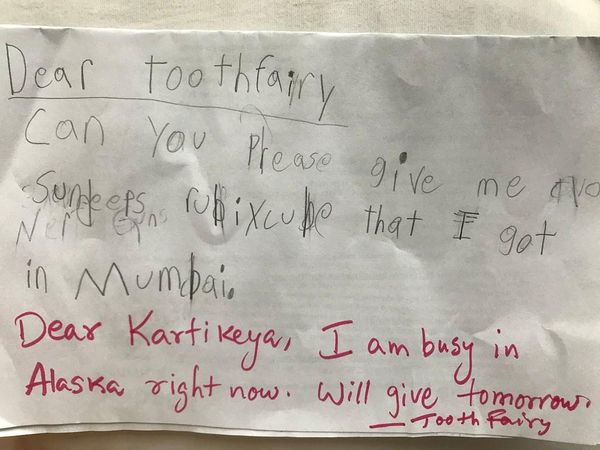 Dear toothfairy
Can you Please give me
Sundeeps rubixcube that I got
in Mumbai.
Dear Kartikeya, I am busy in
Alaska right now. Will give tomorrow.
— Tooth Fairy